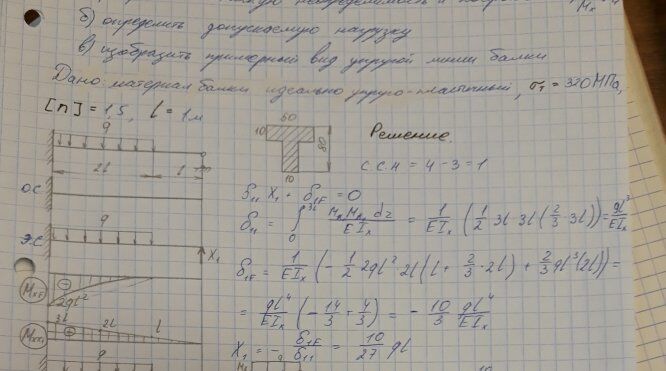 б) определить допускаемую нагрузку
в) изобразить примерный вид упругой линии балки
Дано: материал балки идеально упруго-пластичный, σт = 320 МПа,
[n] = 1,5, l = 1 м
q
2l
l
60
10
80
10
Решение.
с.с.н = 4 - 3 = 1
О.С.
δ11 X1 + δ1F = 0
Э.С.
q
X1
δ11 = ∫0^3l Mx1 Mx1 dz / EIx = 1/EIx (1/2 · 3l · 3l (2/3 · 3l)) = 9l^3/EIx
MxF
2ql^2
δ1F = 1/EIx (-1/2 2ql^2 2l (l + 2/3 · 2l) + 2/3 ql^3 (2l)) =
= ql^4/EIx (-14/3 + 4/3) = -10/3 ql^4/EIx
Mx1
3l
2l
l
X1 = - δ1F/δ11 = 10/27 ql
q